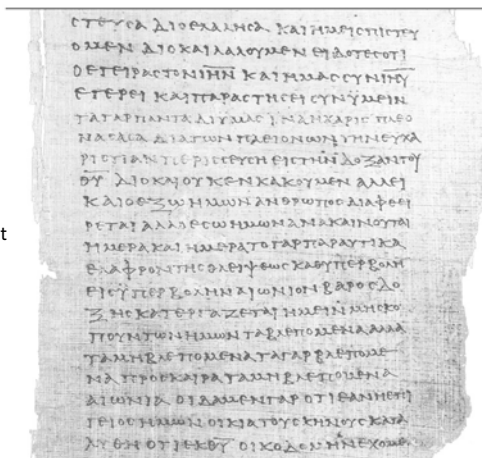 ϹΤΕΥϹΑ ΔΙΟ ΕΛΑΛΗϹΑ ΚΑΙ ΗΜΕΙϹ ΠΙϹΤΕΥ
ΟΜΕΝ ΔΙΟ ΚΑΙ ΛΑΛΟΥΜΕΝ ΕΙΔΟΤΕϹ ΟΤΙ
Ο ΕΓΕΙΡΑϹ ΤΟΝ ΙΗΝ ΚΑΙ ΗΜΑϹ ϹΥΝ ΙΗΥ
ΕΓΕΡΕΙ ΚΑΙ ΠΑΡΑϹΤΗϹΕΙ ϹΥΝ ΥΜΕΙΝ
ΤΑ ΓΑΡ ΠΑΝΤΑ ΔΙ ΥΜΑϹ ΙΝΑ Η ΧΑΡΙϹ ΠΛΕΟ
ΝΑϹΑϹΑ ΔΙΑ ΤΩΝ ΠΛΕΙΟΝΩΝ ΤΗΝ ΕΥΧΑ
ΡΙϹΤΙΑΝ ΠΕΡΙϹϹΕΥϹΗ ΕΙϹ ΤΗΝ ΔΟΞΑΝ ΤΟΥ
ΘΥ ΔΙΟ ΚΑΙ ΟΥΚ ΕΝΚΑΚΟΥΜΕΝ ΑΛΛ ΕΙ
ΚΑΙ Ο ΕΞΩ ΗΜΩΝ ΑΝΘΡΩΠΟϹ ΔΙΑΦΘΕΙ
ΡΕΤΑΙ ΑΛΛ Ο ΕϹΩ ΗΜΩΝ ΑΝΑΚΑΙΝΟΥΤΑΙ
t
ΗΜΕΡΑ ΚΑΙ ΗΜΕΡΑ ΤΟ ΓΑΡ ΠΑΡΑΥΤΙΚΑ
ΕΛΑΦΡΟΝ ΤΗϹ ΘΛΕΙΨΕΩϹ ΚΑΘ ΥΠΕΡΒΟΛΗ
ΕΙϹ ΥΠΕΡΒΟΛΗΝ ΑΙΩΝΙΟΝ ΒΑΡΟϹ ΔΟ
ΞΗϹ ΚΑΤΕΡΓΑΖΕΤΑΙ ΗΜΕΙΝ ΜΗ ϹΚΟ
ΠΟΥΝΤΩΝ ΗΜΩΝ ΤΑ ΒΛΕΠΟΜΕΝΑ ΑΛΛΑ
ΤΑ ΜΗ ΒΛΕΠΟΜΕΝΑ ΤΑ ΓΑΡ ΒΛΕΠΟΜΕ
ΝΑ ΠΡΟϹΚΑΙΡΑ ΤΑ ΜΗ ΒΛΕΠΟΜΕΝΑ
ΑΙΩΝΙΑ ΟΙΔΑΜΕΝ ΓΑΡ ΟΤΙ ΕΑΝ Η ΕΠΙ
ΓΕΙΟϹ ΗΜΩΝ ΟΙΚΙΑ ΤΟΥ ϹΚΗΝΟΥϹ ΚΑΤΑ
ΛΥΘΗ ΟΤΙ ΕΚ ΘΥ ΟΙΚΟΔΟΜΗΝ ΕΧΟΜΕ